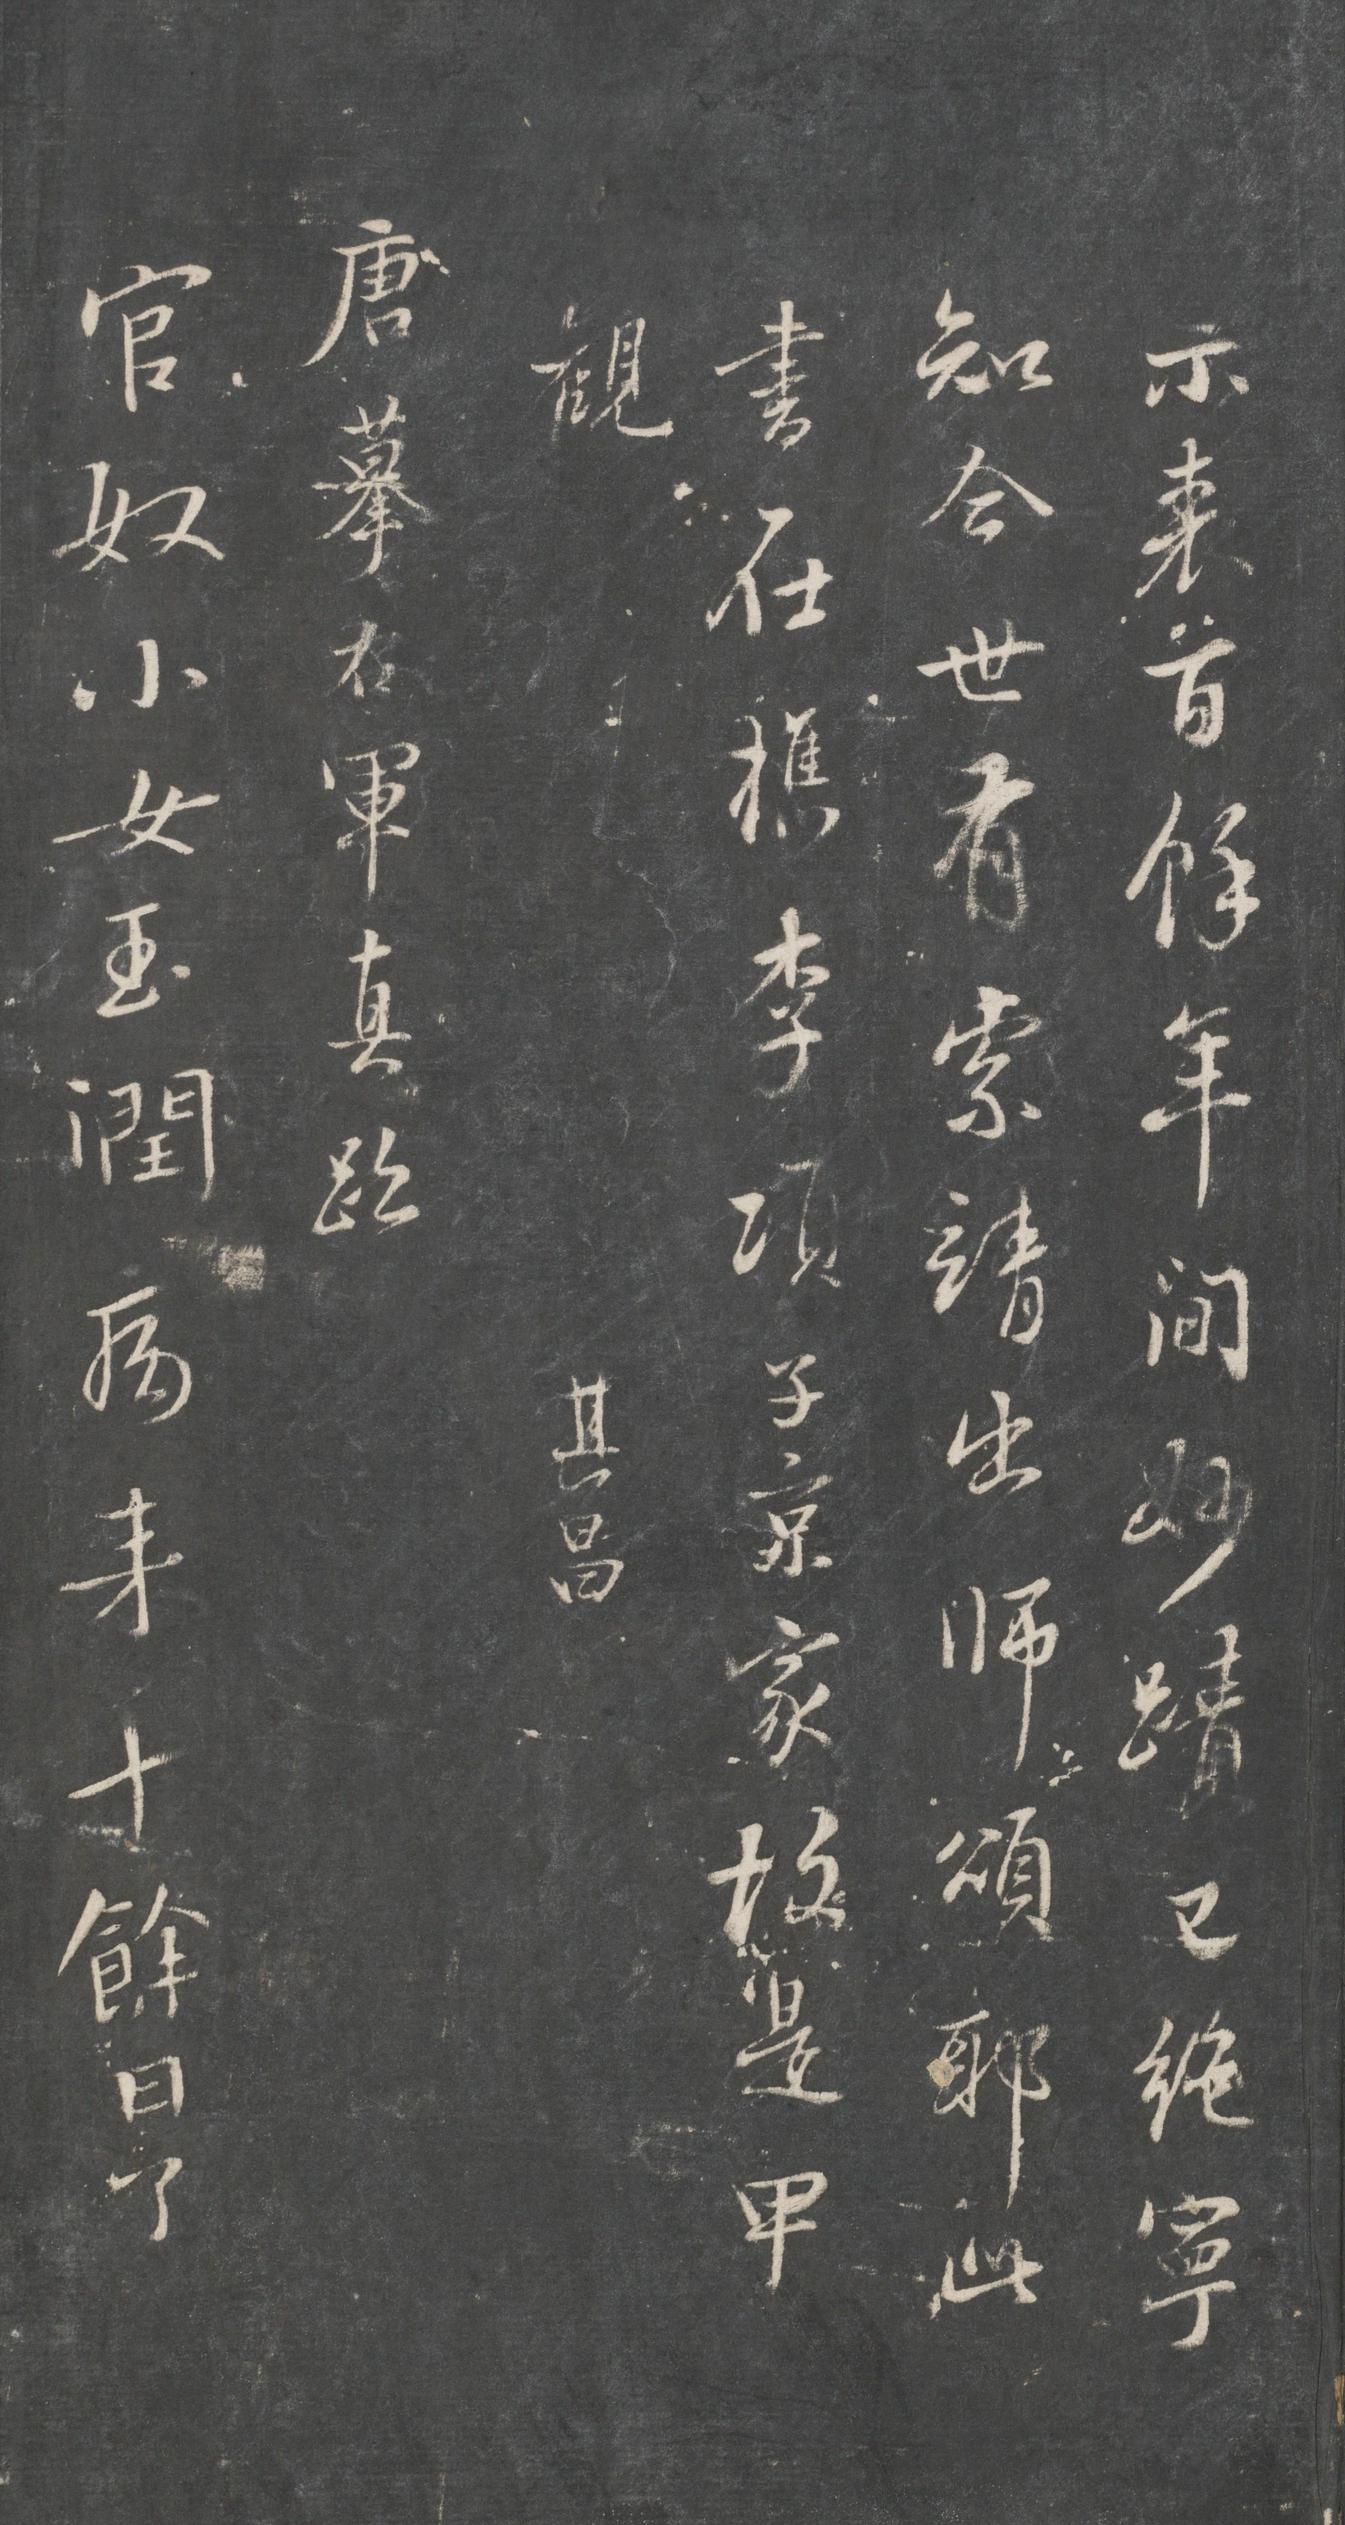 尓来百餘年間妙蹟已絶寧
知今世有索靖出師頌耶此
書在檇李項子京家故是甲
觀
其昌
唐摹右軍真跡
官奴小女玉潤病来十餘日了